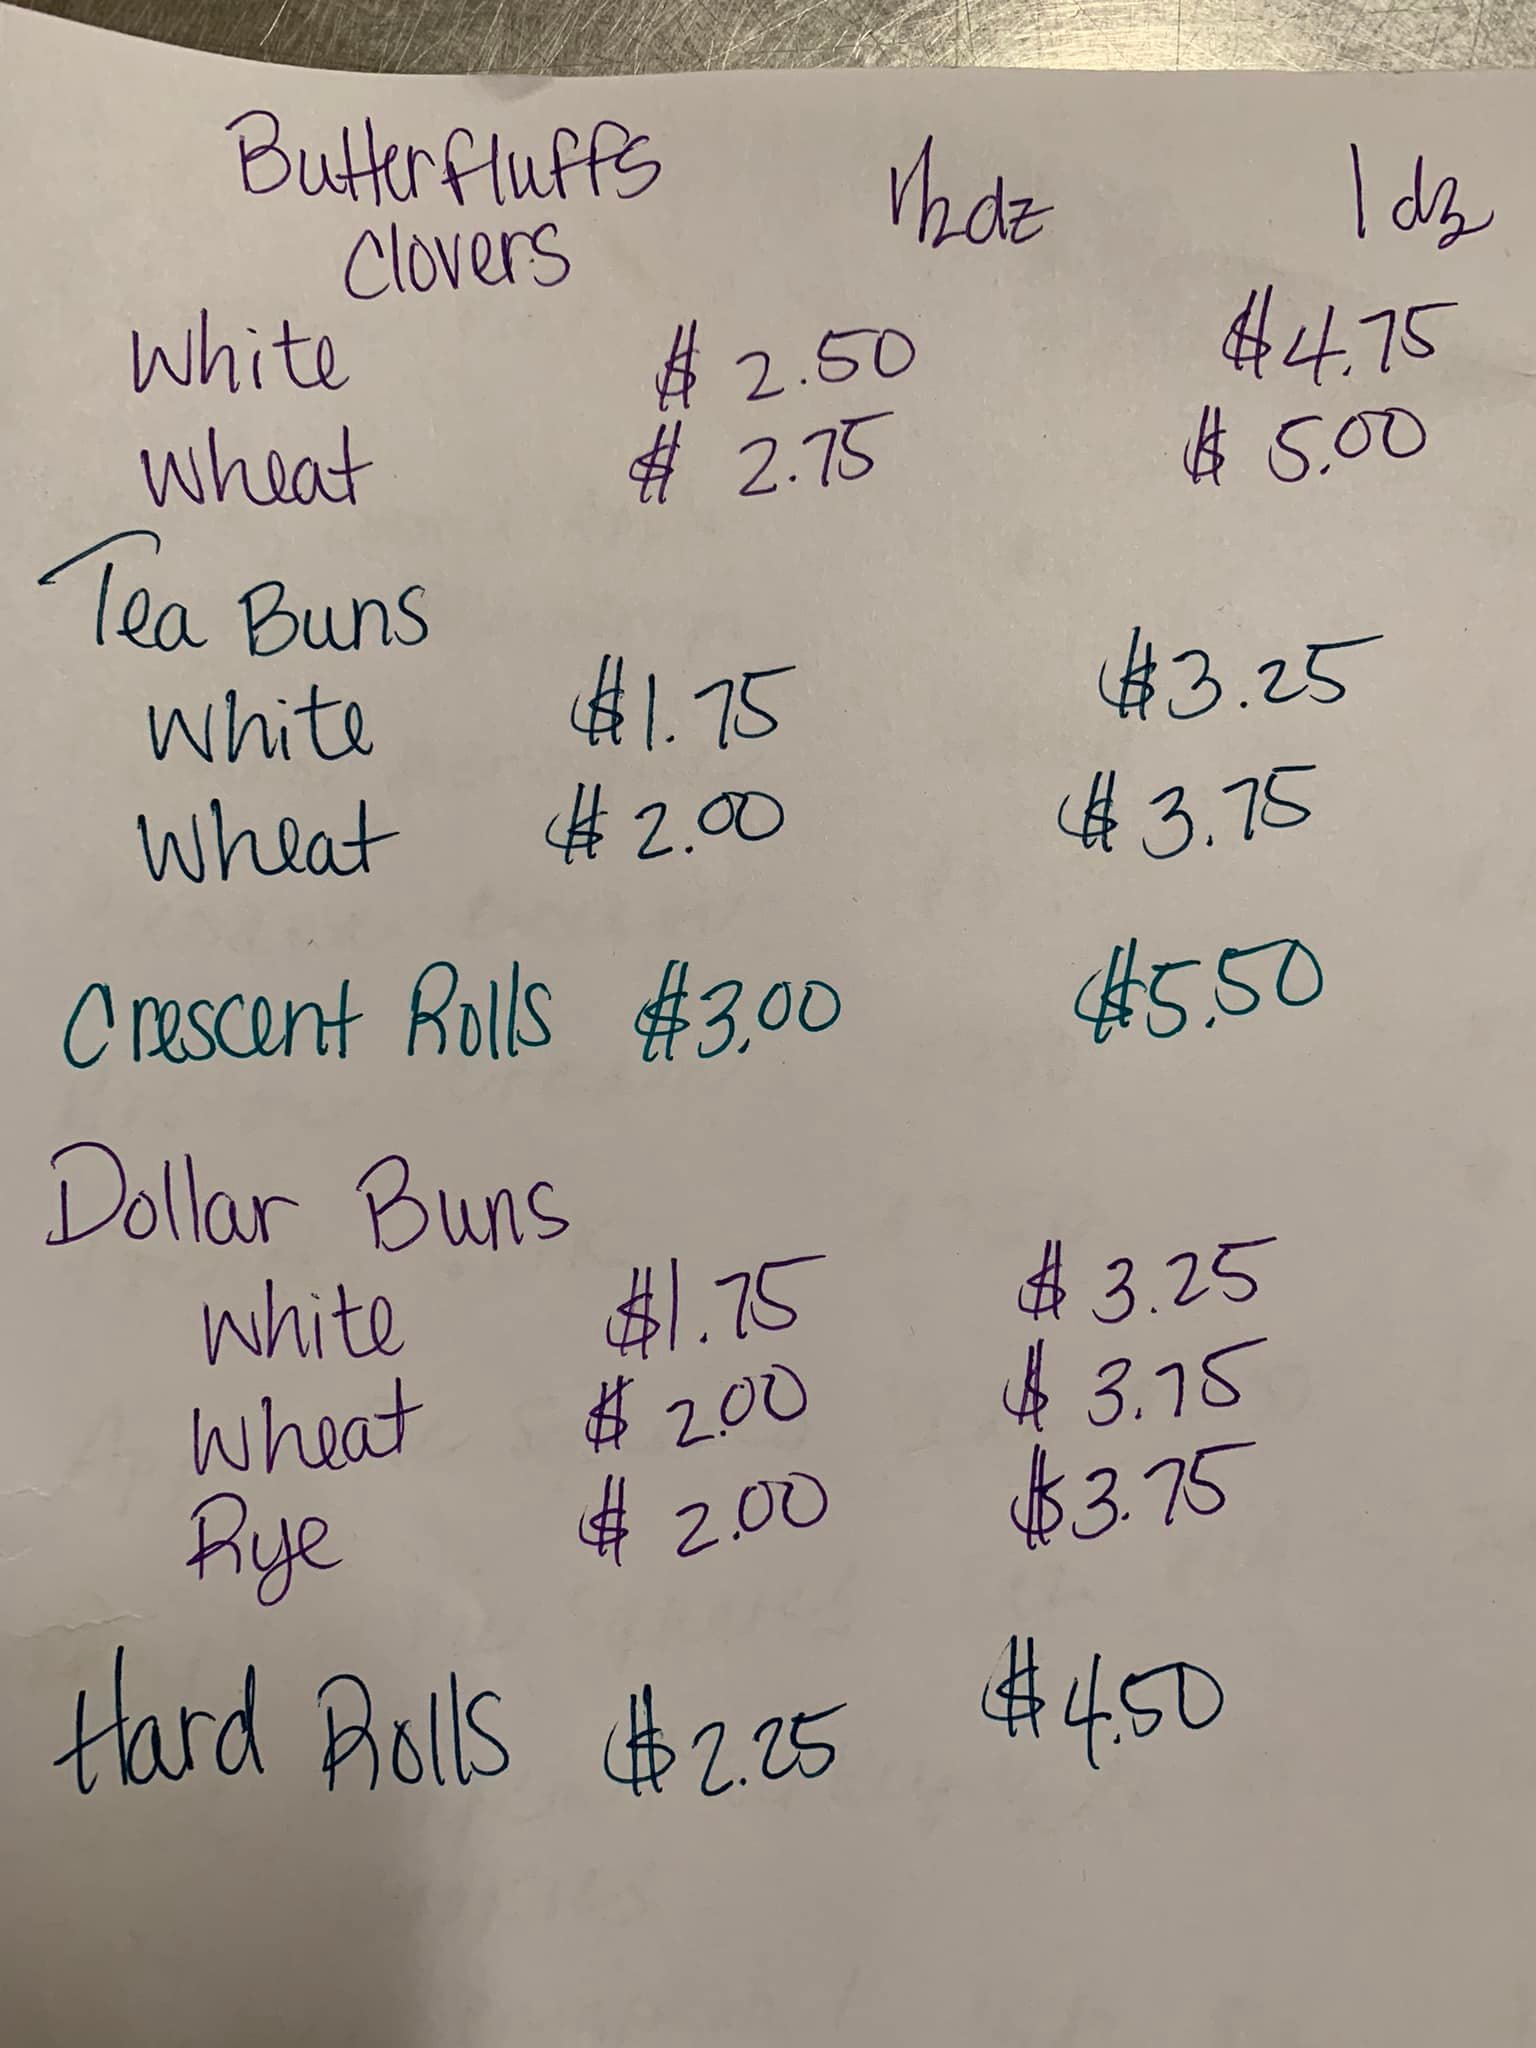 Butterfluffs 1/2dz 1 dz
Clovers
White $ 2.50 $4.75
Wheat $ 2.75 $ 5.00
Tea Buns
White $1.75 $3.25
Wheat $ 2.00 $ 3.75
Crescent Rolls $3.00 $5.50
Dollar Buns
White $1.75 $ 3.25
Wheat $ 2.00 $ 3.75
Rye $ 2.00 $3.75
Hard Rolls $2.25 $4.50